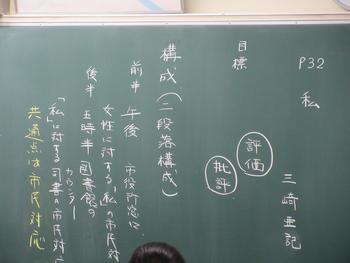 P32
私
三崎亜記
目標
評価
批評
構成(二段落構成)
前半 午後 市役所窓口
女性に対する「私」の市民対
後半 五時半 図書館の
カウンター
「私」に対する司書の市民対応
共通点は市民対応